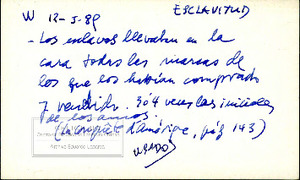 ESCLAVITUD
W 12-5-89
- Los esclavos llevaban en la
cara todas las marcas de
los que los habían comprado
y vendido. 3 ó 4 veces las iniciales
de los amos.
(La conquête d'Amérique, pág 143)
USADO